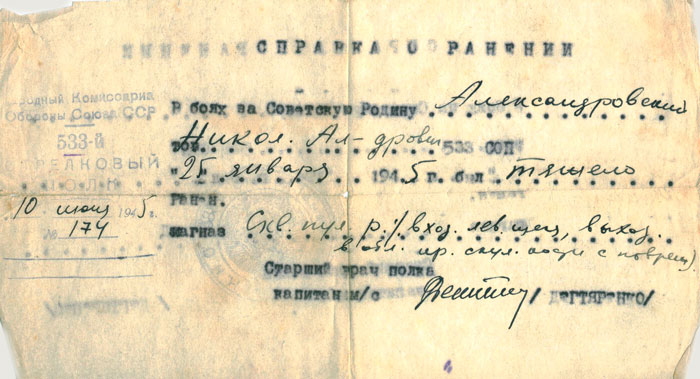 СПРАВКА О РАНЕНИИ
Народный Комиссариа
Обороны Союза ССР
533-й
СТРЕЛКОВЫЙ
ПОЛК
10 1945.
№ 174
В боях за Советскую Родину Александровский
Никол. Ал-дрович 533 СОП
"25 января 1945 г. был тяжело
ранен.
Диагноз Скв. пул. р. / вход. лев. щека, выход.
в обл. пр. скул. кости с поврежд)
Старший врач полка
капитан м/с /ДЕГТЯРЕНКО/